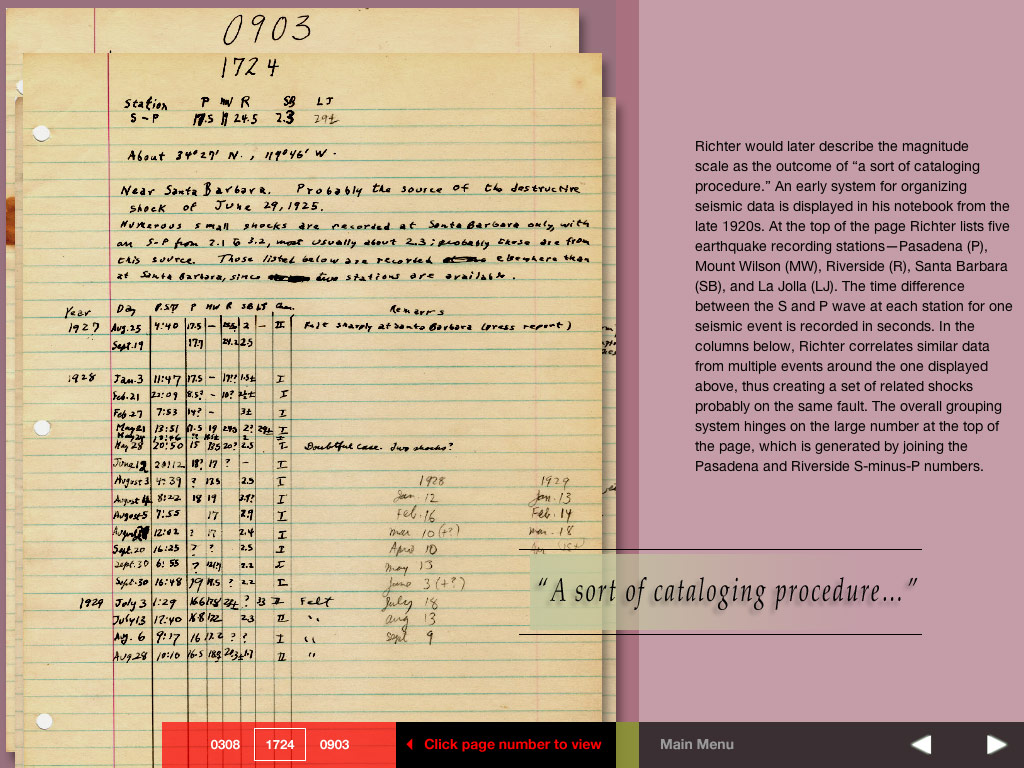 0903
1724
Station P MW R SB LJ
S-P 17.5 19 24.5 2.3 29±
About 34°27' N., 119°46' W.
Near Santa Barbara. Probably the source of the destructive
shock of June 29, 1925.
Numerous small shocks are recorded at Santa Barbara only, with
an S-P from 2.1 to 3.2, most usually about 2.3; probably these are from
this source. Those listed below are recorded elsewhere than
at Santa Barbara, since two stations are available.
Year Day P.S.T P MW R SB LJ Remarks
1927 Aug. 25 4:40 17.5 – 2 – II Felt sharply at Santa Barbara (press report)
Sept. 19 17.7 24.2 2.5
1928 Jan. 3 11:47 17.5 – 17? 1.5± I
Feb. 21 22:09 8.5? – 10? I
Feb. 27 7:53 14? – 3± I
May 21 13:51 17.5 19 2? I
May 28 20:50 15 20? 2.5 I Doubtful case. Two shocks?
June 12 18? 17 ? – I
August 3 4:39 ? 17.5 2.5 I 1928 1929
August 4 8:22 18 19 I Jan. 12 Jan. 13
August 5 7:55 17 2.9 I Feb. 16 Feb. 14
August 12:02 ? 17 2.4 I Mar 10 (+?) Mar. 18
Sept. 20 16:25 ? ? 2.5 I April 10
Sept. 30 6:55 ? 2.2 I May 13
Sept. 30 16:48 19 18.5 ? 2.2 I June 3 (+?)
1929 July 3 1:29 ? II Felt July 18
July 13 17:40 2.3 II " Aug 13
Aug. 6 9:17 16 ? ? I " Sept 9
Aug 28 10:10 16.5 II "
Richter would later describe the magnitude
scale as the outcome of “a sort of cataloging
procedure.” An early system for organizing
seismic data is displayed in his notebook from the
late 1920s. At the top of the page Richter lists five
earthquake recording stations—Pasadena (P),
Mount Wilson (MW), Riverside (R), Santa Barbara
(SB), and La Jolla (LJ). The time difference
between the S and P wave at each station for one
seismic event is recorded in seconds. In the
columns below, Richter correlates similar data
from multiple events around the one displayed
above, thus creating a set of related shocks
probably on the same fault. The overall grouping
system hinges on the large number at the top of
the page, which is generated by joining the
Pasadena and Riverside S-minus-P numbers.
“A sort of cataloging procedure...”
0308 1724 0903 Click page number to view Main Menu